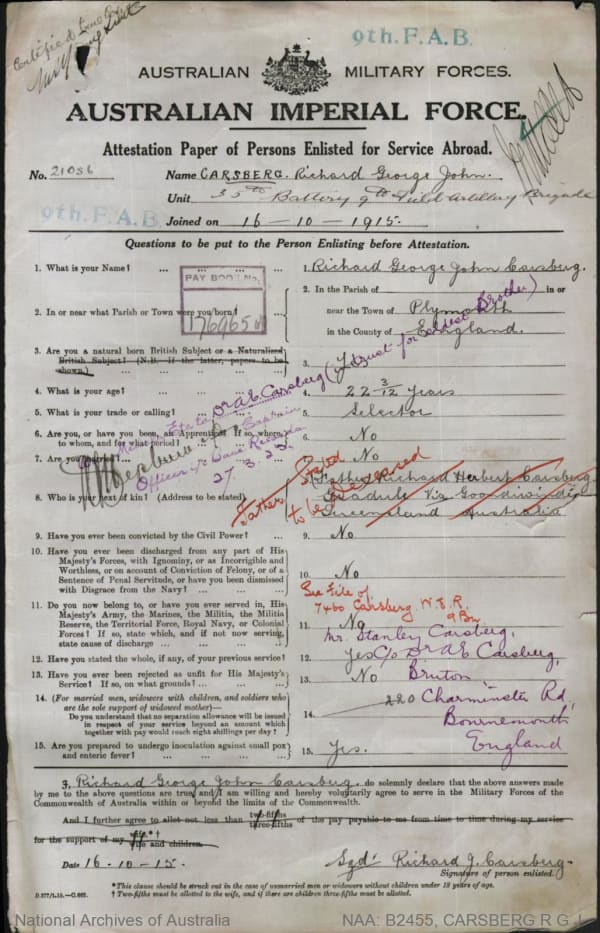 Certified to true Copy
9th. F.A.B.
AUSTRALIAN MILITARY FORCES.
AUSTRALIAN IMPERIAL FORCE.
Attestation Paper of Persons Enlisted for Service Abroad.
No. 21086 Name CARSBERG. Richard George John.
Unit 35th Battery 9th Field Artillery Brigade
9th. F.A.B.
Joined on 16-10-1915.
Questions to be put to the Person Enlisting before Attestation.
1. What is your Name? ... ... ... 1. Richard George John Carsberg.
PAY BOOK No.
176965
2. In or near what Parish or Town were you born? 2. In the Parish of in or
near the Town of Plymouth
in the County of England.
3. Are you a natural born British Subject or a Naturalized
British Subject? (N.B. If the latter, papers to be
shown.) 3.
4. What is your age? ... 4. 22 3/12 years
5. What is your trade or calling? ... 5. Selector
6. Are you, or have you been, an Apprentice? If so, where,
to whom, and for what period? 6. No
7. Are you married? 7. No
Dr A E Carsberg (in trust for eldest brother)
Officer i/c Base Records
27.3.22
8. Who is your next of kin? (Address to be stated) 8. Father Richard Herbert Carsberg
Via Goondiwindi
Queensland Australia
Father stated
to be deceased
9. Have you ever been convicted by the Civil Power? ... 9. No
10. Have you ever been discharged from any part of His
Majesty's Forces, with Ignominy, or as Incorrigible and
Worthless, or on account of Conviction of Felony, or of a
Sentence of Penal Servitude, or have you been dismissed
with Disgrace from the Navy? ... ... 10. No
See File of
7460 Carsberg W.E.R.
9 Bn
11. Do you now belong to, or have you ever served in, His
Majesty's Army, the Marines, the Militia, the Militia
Reserve, the Territorial Force, Royal Navy, or Colonial
Forces? If so, state which, and if not now serving,
state cause of discharge ... ... ... 11. No
Mr. Stanley Carsberg,
12. Have you stated the whole, if any, of your previous service? 12. Yes
C/o Dr A E Carsberg,
13. Have you ever been rejected as unfit for His Majesty's
Service? If so, on what grounds? ... ... 13. No
Bruton,
220 Charminster Rd
Bournemouth
England
14. (For married men, widowers with children, and soldiers who
are the sole support of widowed mother)—
Do you understand that no separation allowance will be issued
in respect of your service beyond an amount which
together with pay would reach eight shillings per day? 14.
15. Are you prepared to undergo inoculation against small pox
and enteric fever? ... ... ... 15. Yes.
I, Richard George John Carsberg. do solemnly declare that the above answers made
by me to the above questions are true, and I am willing and hereby voluntarily agree to serve in the Military Forces of the
Commonwealth of Australia within or beyond the limits of the Commonwealth.
And I further agree to allot not less than two-fifths three-fifths of the pay payable to me from time to time during my service
for the support of my wife*† wife and children.
Date 16-10-15. Sgd. Richard J. Carsberg.
Signature of person enlisted.
*This clause should be struck out in the case of unmarried men or widowers without children under 18 years of age.
† Two-fifths must be allotted to the wife, and if there are children three-fifths must be allotted.
National Archives of Australia NAA: B2455, CARSBERG R G J